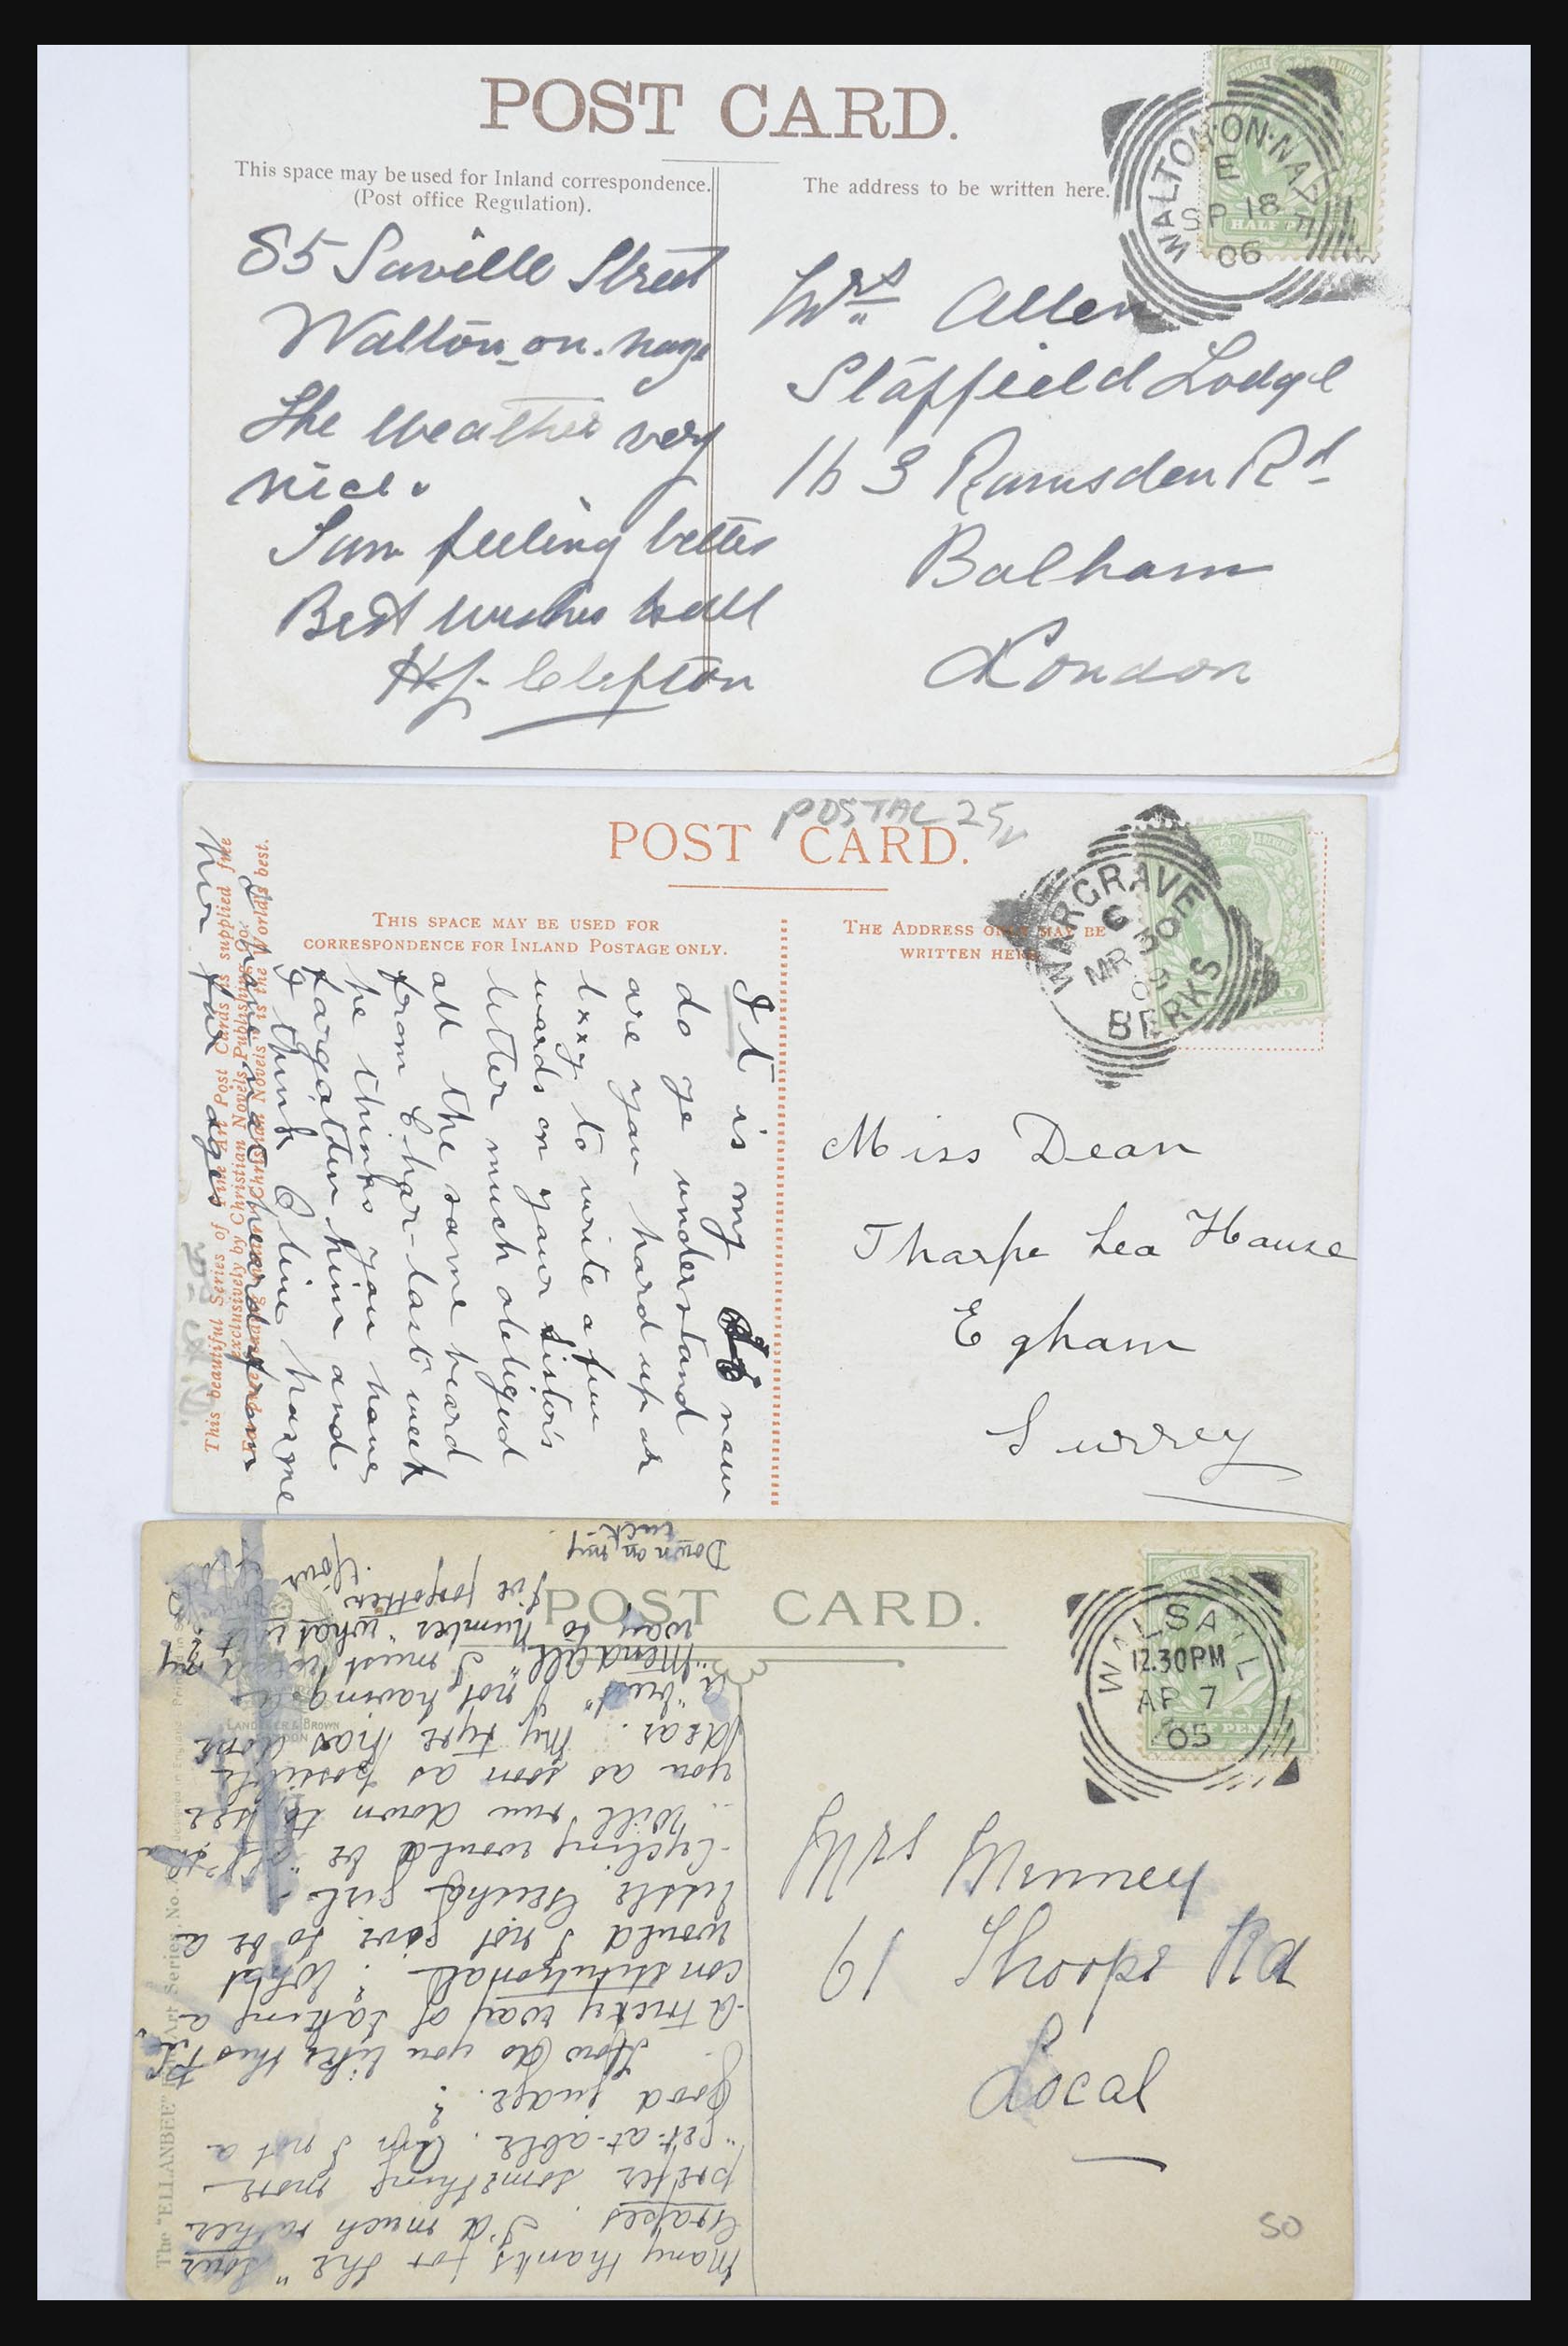 POST CARD.
This space may be used for Inland correspondence.
(Post office Regulation).
The address to be written here.
WALTON·ON·NAZE
E
SP 18
06
HALF
85 Saville Street
Walton-on-naze
The weather very
nice.
I am feeling better
Best wishes to all
H.J. Clifton
Mrs Allen
Staffield Lodge
163 Ramsden Rd
Balham
London
POSTAL 25
POST CARD.
THIS SPACE MAY BE USED FOR
CORRESPONDENCE FOR INLAND POSTAGE ONLY.
THE ADDRESS ONLY MAY BE
WRITTEN HERE
WARGRAVE
MR 30
BERKS
It is my now
do ye understand
are you hard up or
lazy to write a few
words on your sister's
letter much obliged
all the same heard
from Char- last week
he thinks you have
forgotten him and
I think Clive has me
I have not heard from
her for ages
This beautiful Series of Fine Art Post Cards is supplied free
exclusively by Christian Novels Publishing Co.
Christian Novels" is the World's best.
Miss Dean
Tharpe Lea House
Egham
Surrey
POST CARD.
WALSALL
12.30PM
AP 7
05
The "ELLANBEE" Art Series, No.
LANDEKER & BROWN
LONDON
Many thanks for the "sour
Grapes. I'd much rather
prefer something more
"get-at-able. Am I not a
good judge.?
How do you like this P.C.
A tricky way of taking a
constitutional? What
would I not give to be a
little Geisha girl-
Cycling would be "off"
Will run down to see
you as soon as possible
dear. My tyre has done
a "bust" of not having
"Mendall" I must
way to number "what is it?
I've forgotten your
Down on my
luck-
Mrs Minney
61 Thorpe Rd
Local
50